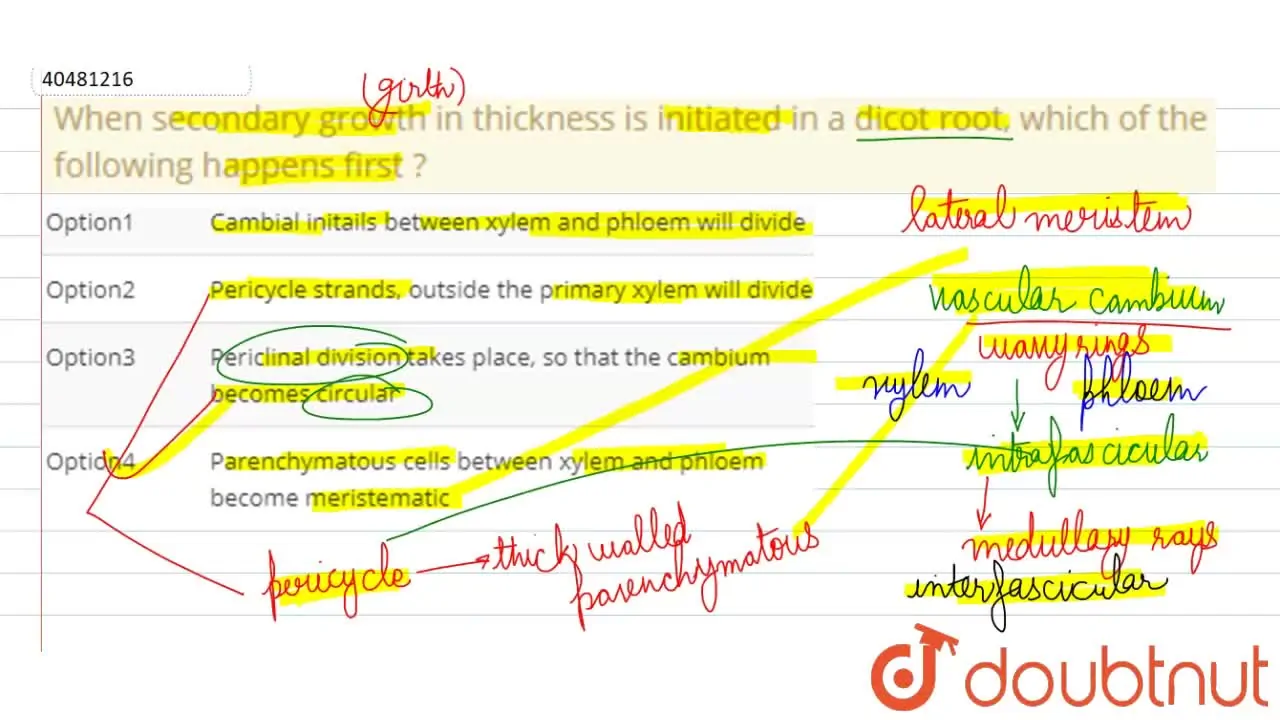 40481216
(girth)
When secondary growth in thickness is initiated in a dicot root, which of the
following happens first ?
Option1 Cambial initails between xylem and phloem will divide
lateral meristem
Option2 Pericycle strands, outside the primary xylem will divide
vascular cambium
wavy rings
Option3 Periclinal division takes place, so that the cambium
becomes circular
xylem phloem
intrafascicular
Option4 Parenchymatous cells between xylem and phloem
become meristematic
medullary rays
interfascicular
pericycle → thick walled
parenchymatous
doubtnut